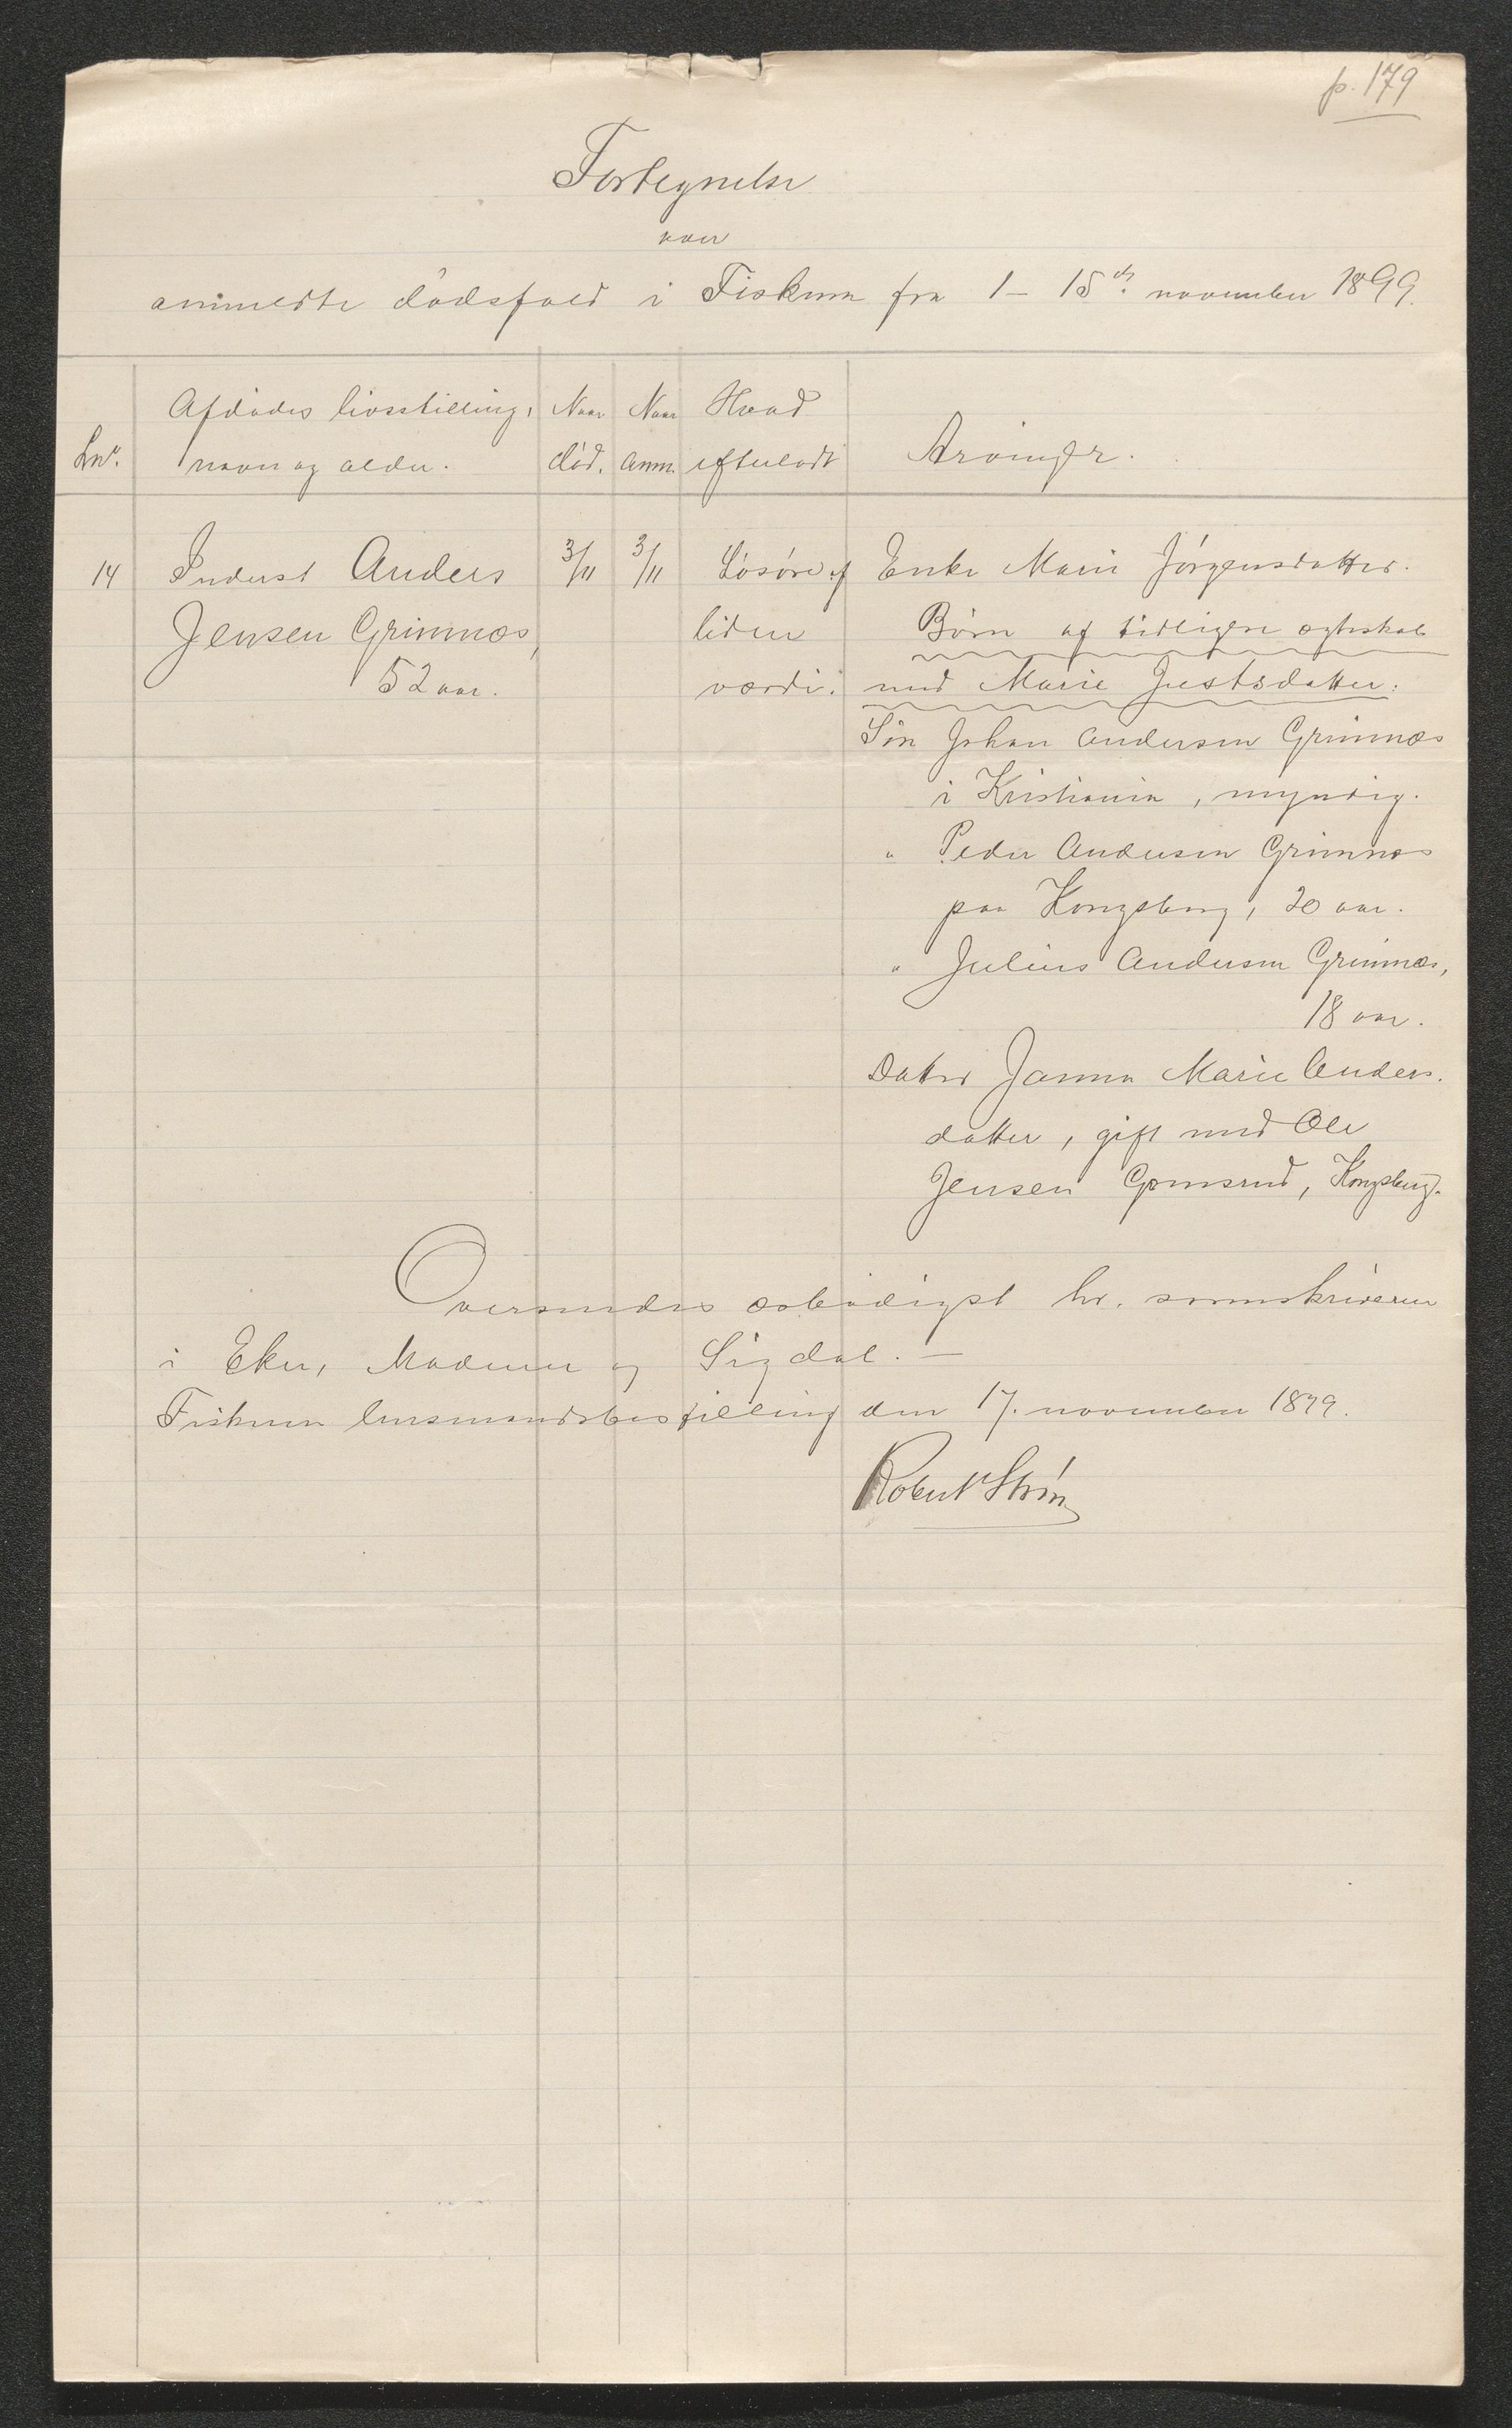 p. 179
Fortegnelse
over
anmeldte dödsfald i Fiskum fra 1 – 15de november 1899.
Lnr. Afdödes livsstilling, navn og alder. Naar död. Naar anm. Hvad efterladt Arvinger.
14 Inderst Anders 3/11 3/11 Lösöre af Enke Marie Jörgensdatter.
Jensen Grimnæs, liden Börn af tidligere ægteskab
52 aar. værdi. med Marie Justsdatter:
Sön Johan Andersen Grimnæs
i Kristiania, myndig.
" Peder Andersen Grimnæs
paa Kongsberg, 20 aar.
" Julius Andersen Grimnæs,
18 aar.
Datter Janna Marie Anders.
datter, gift med Ole
Jensen Gomsrud, Kongsberg.
Oversendes ærbödigst hr. sorenskriveren
i Eker, Modum og Sigdal. –
Fiskum lensmandsbestilling den 17. november 1899.
Robert Ström